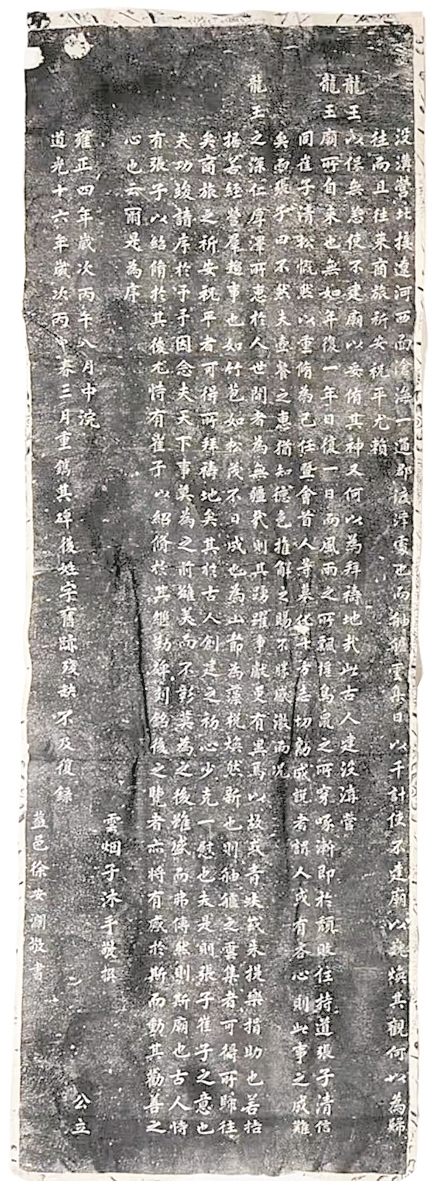 没溝營北接遼河西面滄海一通郡故津處也而舳艫雲集日以千計使不建廟以巍煥其觀何以為歸
往而且往來商旅祈安祝平尤賴
龍王以保無恙使不建廟以安侑其神又何以為拜禱地哉此古人建没溝營
龍王廟所自來也無如年復一年日復一日而風雨之所飄搖鳥鼠之所穿啄漸即於頹敗住持道張子清信
同崔子清松慨然以重脩為己任暨會首人等募化十方志切勸成説者謂人或有吝心則此事之成難
矣而張子曰不然夫壺餐之惠猶知德色推解之賜不勝感激而况
龍王之深仁厚澤所惠於人世間者為無疆哉則其踴躍争獻更有異焉以故或青蚨或朱提樂捐助也若拮
据若經營羣趨事也如竹苞如松茂不日成也為山節為藻梲焕然新也則舳艫之雲集者可得所歸往
矣商旅之祈安祝平者可得所拜禱地矣其於古人創建之初心少克一慰也夫是則張子崔子之意也
夫功竣請序於予予因念夫天下事莫為之前雖美而不彰莫為之後雖盛而弗傳然則斯廟也古人恃
有張子以紹脩於其後尤恃有崔子以紹脩於其繼勒碑刻銘後之覽者亦將有感於斯而動其勸善之
心也云爾是為序
雲烟子沐手敬撰
雍正四年歲次丙午八月中浣
公立
道光十六年歲次丙申春三月重鐫其碑後姓字舊跡殘缺不及復錄
益邑徐安瀾敬書